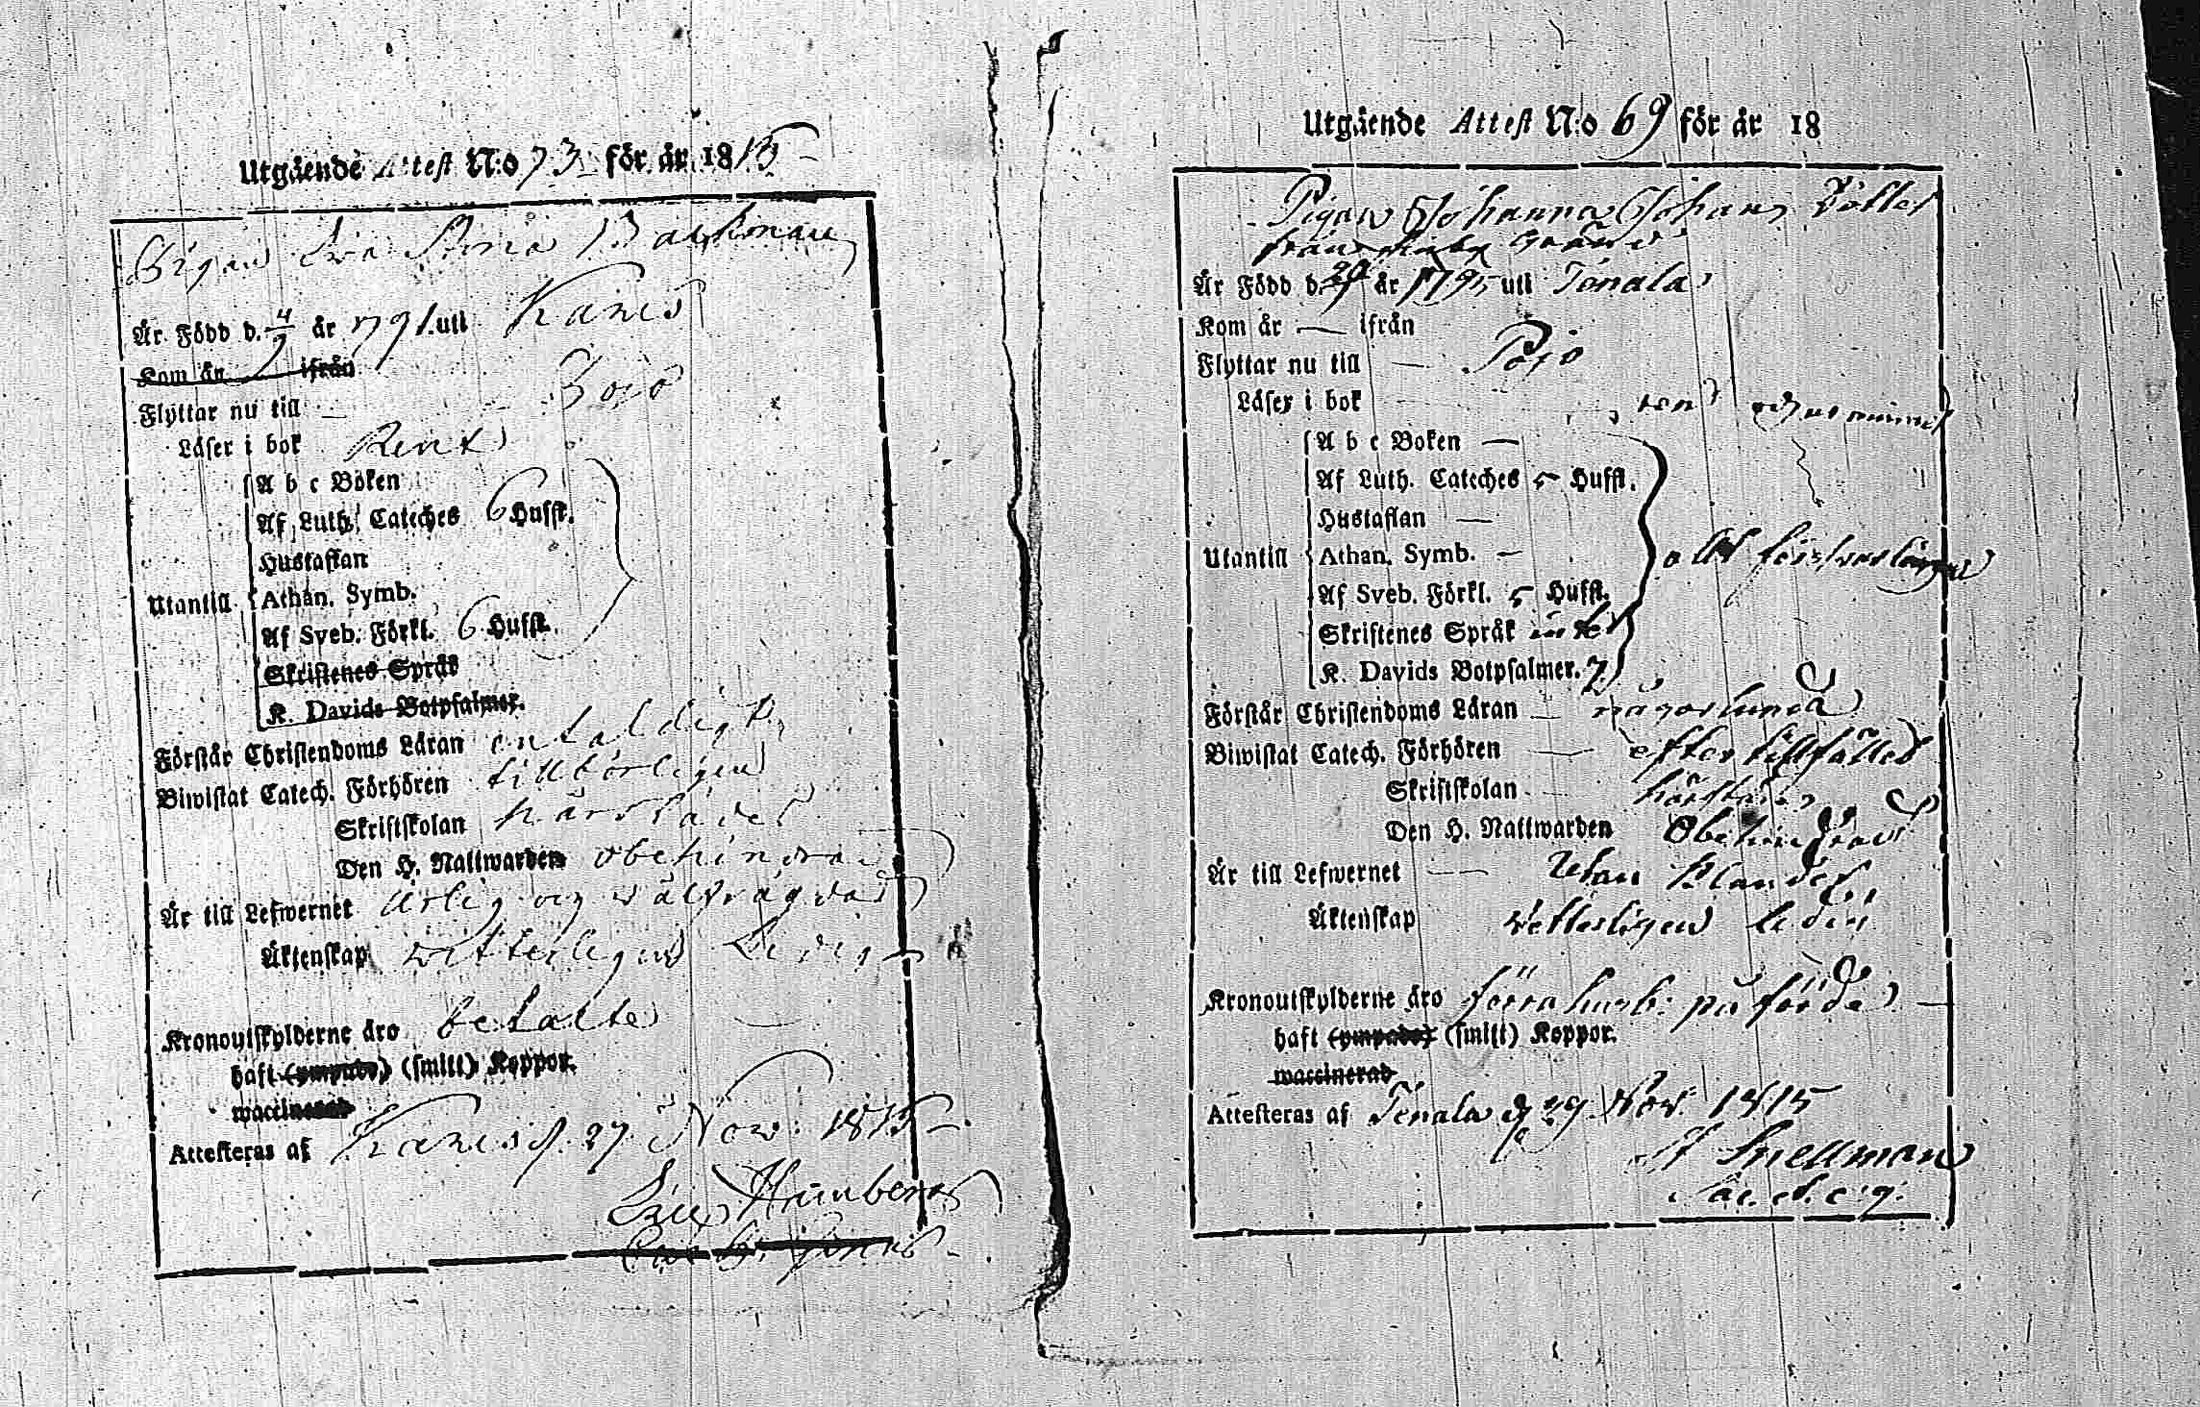 Utgående Attest N:o 73 för år 1815
Pigan Eva Stina Backman
Är Född d. 4/9 år 1791 uti Karis
Kom år ifrån
Flyttar nu till Pojo
Läser i bok Rent
A b c Boken
Af Luth. Cateches 6 Hufst.
Hustaflan
Utantill Athan. Symb.
Af Sveb. Förkl. 6 Hufst.
Skriftenes Språk
K. Davids Botpsalmer.
Förstår Christendoms Läran enfaldigt
Biwistat Catech. Förhören tillbörligen
Skriftskolan härstädes
Den H. Nattwarden obehindrad
Är till Lefwernet ärlig och wälfrägdad
Äktenskap witterligen Ledig
Kronoutskylderne äro betalte
haft (ympade) (smitt) Koppor.
waccinerad
Attesteras af Karis d. 27 Nov. 1815
Utgående Attest N:o 69 för år 18
Pigan Johanna Johans Dotter
från
Är Född d. år 1795 uti Tenala
Kom år — ifrån
Flyttar nu till — Pojo
Läser i bok rent
A b c Boken —
Af Luth. Cateches 5 Hufst.
Hustaflan —
Utantill Athan. Symb. —
Af Sveb. Förkl. 5 Hufst.
Skriftenes Språk
K. Davids Botpsalmer. 7
Förstår Christendoms Läran — någorlunda
Biwistat Catech. Förhören — efter tillfälle
Skriftskolan härstädes
Den H. Nattwarden Obehindrad
Är till Lefwernet — utan klander
Äktenskap vetterligen ledig
Kronoutskylderne äro förra husb: påförde
haft (ympade) (smitt) Koppor.
waccinerad
Attesteras af Tenala d 29 Nov. 1815
Snellman